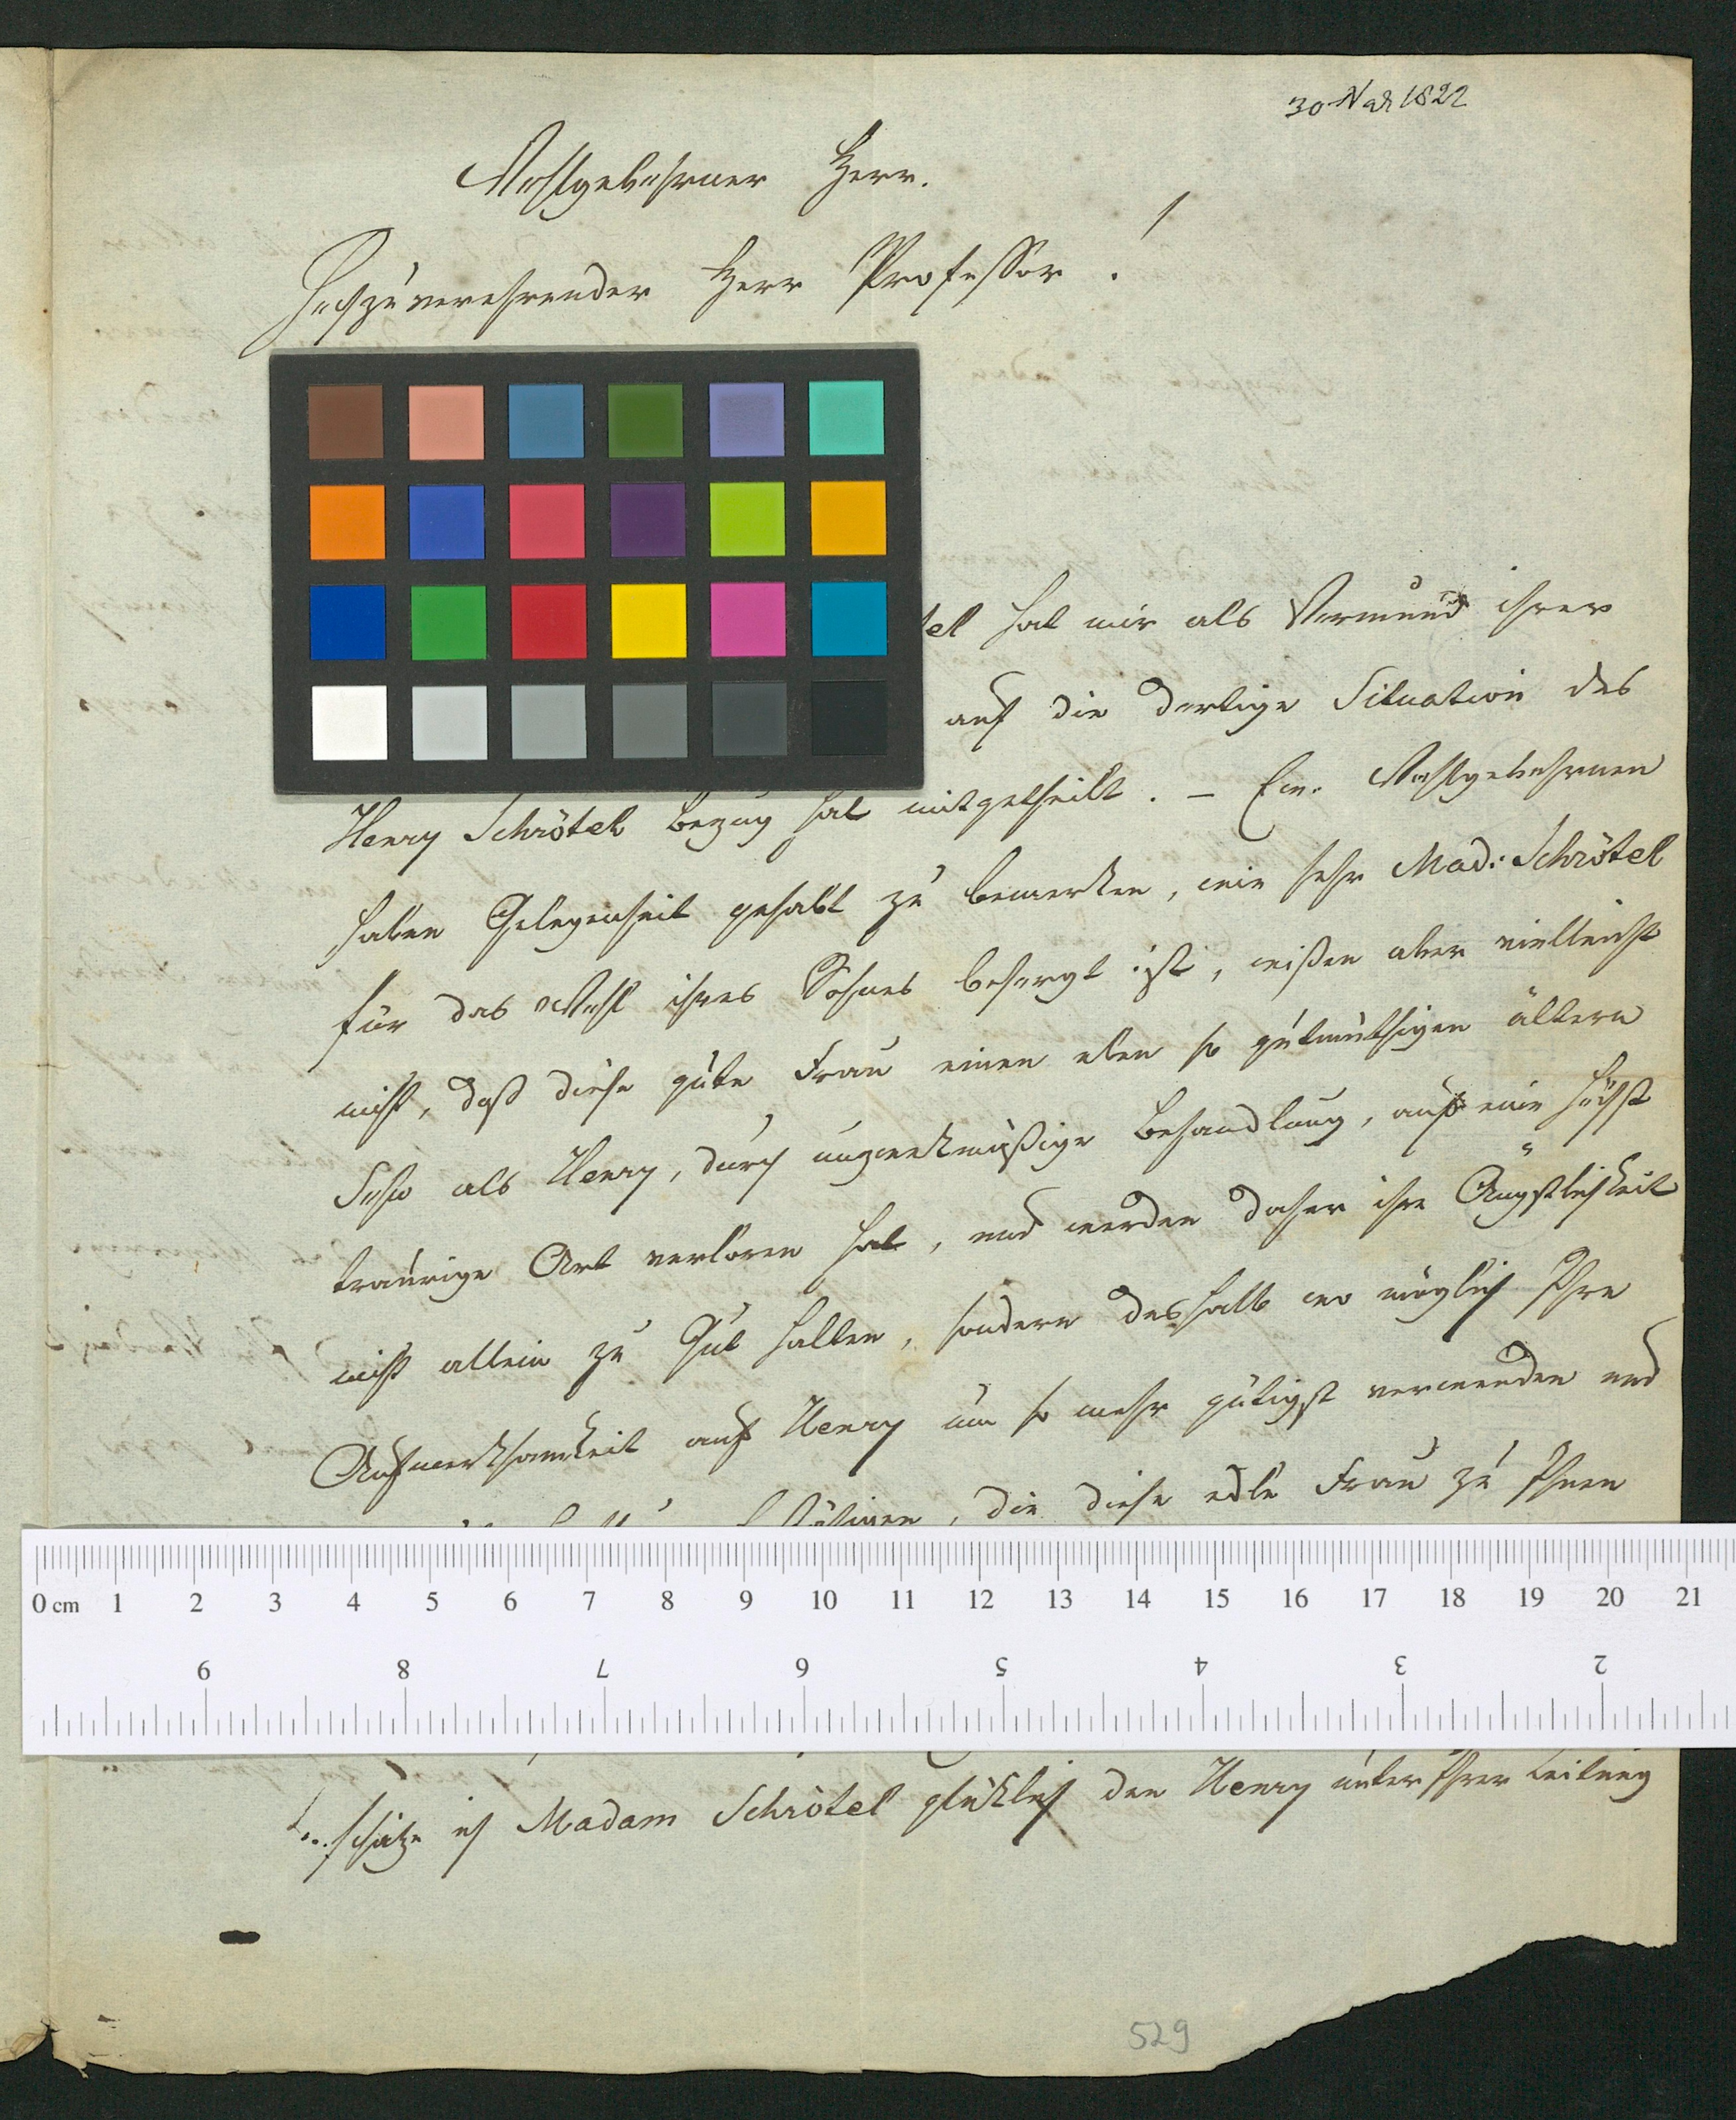 30 Nov 1822
Wohlgebohrner Herr.
Hochzuverehrender Herr Professor!
tel hat mir als Vormund ihrer
auf die dortige Situation des
Henry Schrötel Bezug hat mitgetheilt. – Ew. Wohlgebohrnen
haben Gelegenheit gehabt zu bemerken, wie sehr Mad: Schrötel
für das Wohl ihres Sohnes besorgt ist, wißen aber vielleicht
nicht, daß diese gute Frau einen eben so gutmüthigen ältern
Sohn als Henry, durch unzweckmäßige Behandlung, auf eine höchst
traurige Art verloren hat, und werden daher ihre Ängstlichkeit
nicht allein zu Gut halten, sondern deshalb wo möglich Ihre
Aufmerksamkeit auf Henry um so mehr gütigst verwenden und
, die diese edle Frau zu Ihnen
schätze ich Madam Schrötel glücklich den Henry unter Ihrer Leitung
529
0 cm 1 2 3 4 5 6 7 8 9 10 11 12 13 14 15 16 17 18 19 20 21
9 8 7 6 5 4 3 2